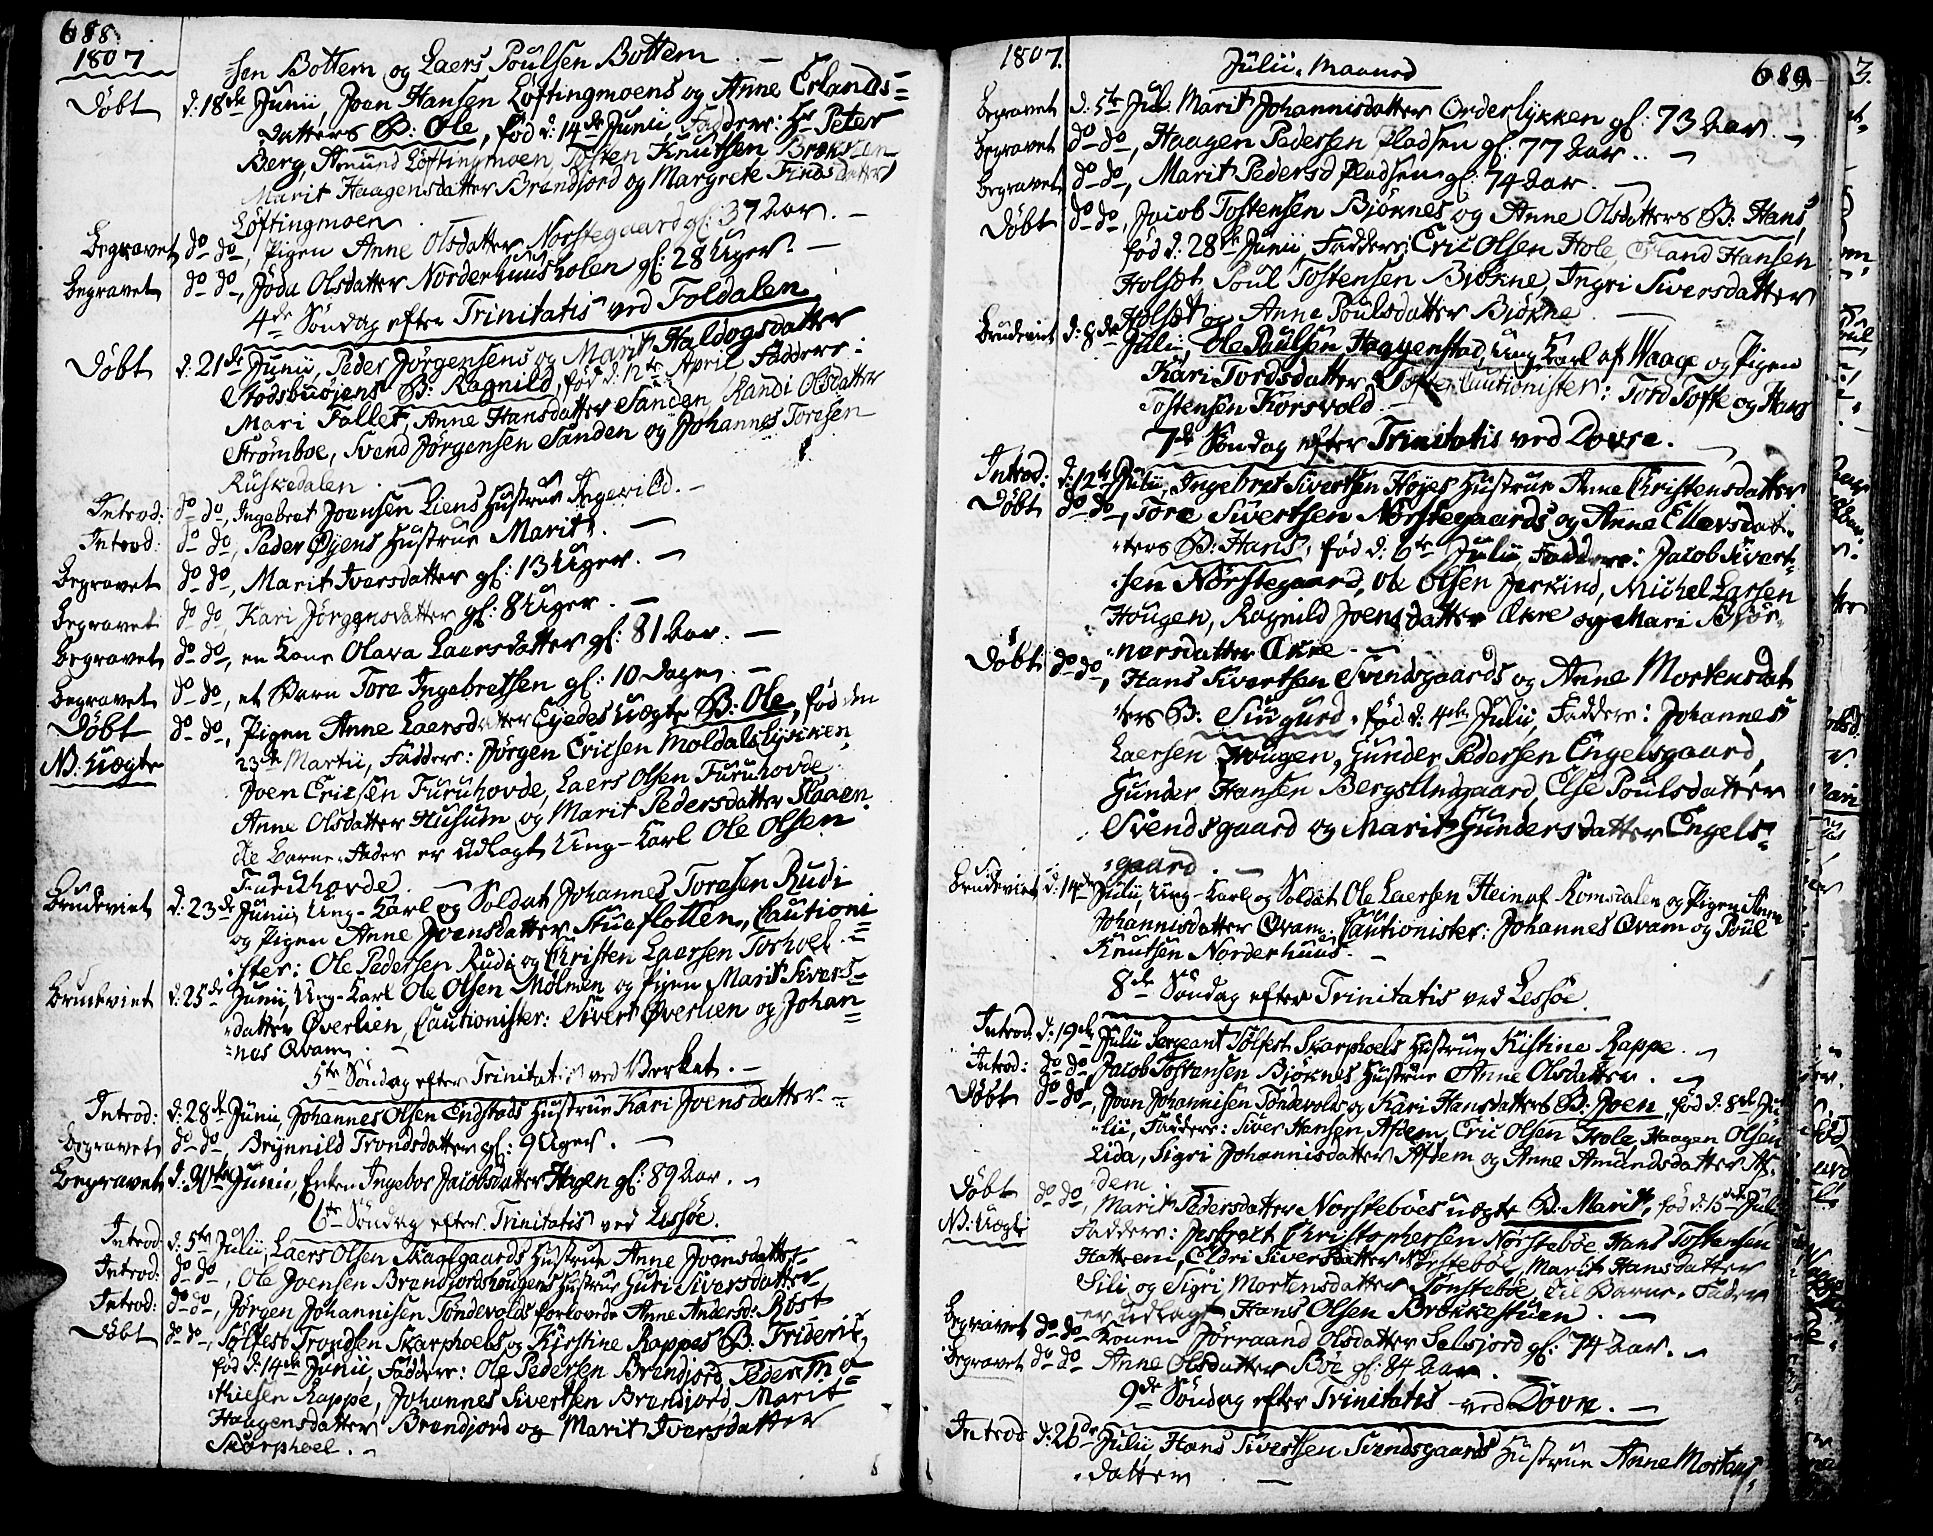 688.
1807
-sen Bottem og Laers Poulsen Bottem. -
Döbt d: 18de Junii, Joen Hansen Löftingmoens og Anne Erlands=
datters B: Ole, föd d: 14de Junii, Faddere: Hr Peter
Berg, Amund Löftingmoen, Tosten Knutsen
Marit Haagensdatter Brandjord og Margrete Findsdatter
Löftingmoen.
Begravet do do, Pigen Anne Olsdatter Norstegaard gl: 37 Aar. -
Begravet do do, Jöda Olsdatter Norderhuusholen gl: 28 Uger. -
4de Söndag efter Trinitatis ved Foldalen
Döbt d: 21de Junii, Peder Jörgensens og Marit Haldogsdatter
Stodsbuöjens B: Ragnild, föd d: 12te April Faddere:
Mari Fallet, Anne Hansdatter Sanden, Randi Olsdatter
Strömboe, Svend Jörgensen Sanden og Johannes Toresen
Ruskedalen. -
Introd: do do, Ingebret Joensen Liens Hustrue Ingevild. -
Introd: do do, Peder Öyens Hustrue Marit. -
Begravet do do, Marit Iversdatter gl: 13 Uger. -
Begravet do do, Kari Jörgensdatter gl: 8 Uger. -
Begravet do do, en Kone Olava Laersdatter gl: 81 Aar. -
Begravet do do, et Barn Tore Ingebretsen gl: 10 Dage. -
Döbt do do, Pigen Anne Laersdatter Eyedes uægte B: Ole, föd den
N: Uægte 23de Martii, Faddere: Jörgen Ericsen Moldalslykken,
Joen Ericsen Furuhovde, Laers Olsen Furuhovde
Anne Olsdatter Husum og Marit Pedersdatter Slaaen.
die Barne-Fader er udlagt Ung-Karl Ole Olsen
Furuhovde. -
Brudeviet d: 23de Junii, Ung-Karl og Soldat Johannes Toresen Rudi
og Pigen Anne Joensdatter Stuaflotten, Cautioni=
ster: Ole Pedersen Rudi og Christen Laersen Torhoel. -
Brudeviet d: 25de Junii, Ung-Karl Ole Olsen Mölmen og Pigen Marit Sivers=
datter Överlien, Cautionister: Sivert Överlien og Johan=
nes Qvam. -
5te Söndag efter Trinitatis ved Verket. -
Introd: d: 28de Junii, Johannes Olsen Endstads Hustrue Kari Joensdatter. -
Begravet do do Brynnild Trondsdatter gl: 9 Uger. -
Begravet d: 30te Junii, Enken Ingebor Jacobsdatter Hagen gl: 89 Aar. -
6te Söndag efter Trinitatis ved Lessöe.
Introd: d: 5te Julii, Laers Olsen Skaglgaards Hustrue Anne Joensdatter
Introd: do do, Ole Joensen Brandjordshougens Hustrue Guri Siversdatter
Introd: do do, Jörgen Johannisen Töndevolds forlovede Anne Andersd: Röst
Döbt do do, Tölfest Trondsen Skarphoels og Kirstine Rappes B: Frideric,
föd d: 14de Junii, Faddere: Ole Pedersen Brandjord, Peder Ma=
thiesen Rappe, Johannes Sivertsen Brandjord, Marit
Haagensdatter Brandjord og Marit Iversdatter
Skarphoel. -
1807. Julii Maaned 689.
Begravet d: 5te Jul. Marit Johannisdatter Orderlykken gl: 73 Aar. -
Begravet do do, Haagen Pedersen Pladsen gl: 77 Aar. -
Begravet do do, Marit Pedersd Pladsen gl: 74 Aar. -
Döbt do do, Jacob Tostensen Björnes og Anne Olsdatters B: Hans,
föd d: 28de Junii, Faddere: Eric Olsen Hole, Hansen
Holset, Poul Tostensen Biökne, Ingri Siversdatter
Holset og Anne Poulsdatter Biökne. -
Brudeviet d: 8de Julii Ole Paulsen Haagenstad, Ung Karl af Waage og Pigen
Kari Tordsdatter Tofte, Cautionister: Tord Tofte og Hans
Tostensen Korsvold. -
7de Söndag efter Trinitatis ved Dovre. -
Introd: d: 12te Julii, Ingebret Sivertsen Höjes Hustrue Anne Christensdatter
Döbt do do, Tore Sivertsen Norstegaards og Anne Ellevsdat=
ters B: Hans, föd d: 6te Julii, Faddere: Jacob Sivert=
sen Norstegaard, Ole Olsen Jerkind, Michel Larsen
Hougen, Ragnild Joensdatter Ækre og Mari Biör=
nersdatter Ækre. -
Döbt do do, Hans Sivertsen Svendsgaards og Anne Mortensdat
ters B: Siugurd, föd d: 4de Julii, Faddere: Johannes
Laersen Hougen, Gunder Pedersen Engelsgaard,
Gunder Hansen Bergs Undgaard, Else Poulsdatter
Svendsgaard og Marit Gundersdatter Engels=
gaard. -
Brudeviet d: 14de Julii, Ung-Karl og Soldat Ole Laersen Hein af Romsdalen og Pigen Anne
Johannisdatter Qvam. Cautionister: Johannes Qvam og Poul
Knutsen Norderhuus. -
8de Söndag efter Trinitatis ved Lessöe.
Introd: d: 19de Julii Sergeant Tölfest Skarphoels Hustrue Kistine Rappe. -
Introd: do do Jacob Tostensen Björnes Hustrue Anne Olsdatter. -
Döbt do do, Joen Johannisen Töndevolds og Kari Hansdatters B: Joen, föd d: 8de Ju=
lii, Faddere: Siver Hansen Asdem, Eric Olsen Hole, Haagen Olsen
Lida, Sigri Johannisdatter Asdem og Anne Amundsdatter As=
dem.
Döbt do do, Marit Pedersdatter Norsteböes uægte B: Marit, föd d: 15de Juli
N: Uægte Faddere: Jesbrelt Christophersen Norsteböe, Hans Tostensen
Hattrem, Eldri Siversdatter Norsteböe, Marit Hansdatter
Lili og Sigri Mortensdatter Tönsteböe, Til Barne-Fader
er udlagt Hans Olsen Brökkestuen. -
Begravet do do Konen Jörraand Olsdatter Selsjord gl: 74 Aar. -
Begravet do do Anne Olsdatter Böe gl: 84 Aar. -
9de Söndag efter Trinitatis ved Dovre. -
Introd d: 26de Julii Hans Sivertsen Svendsgaards Hustrue Anne Mortens,
datter -